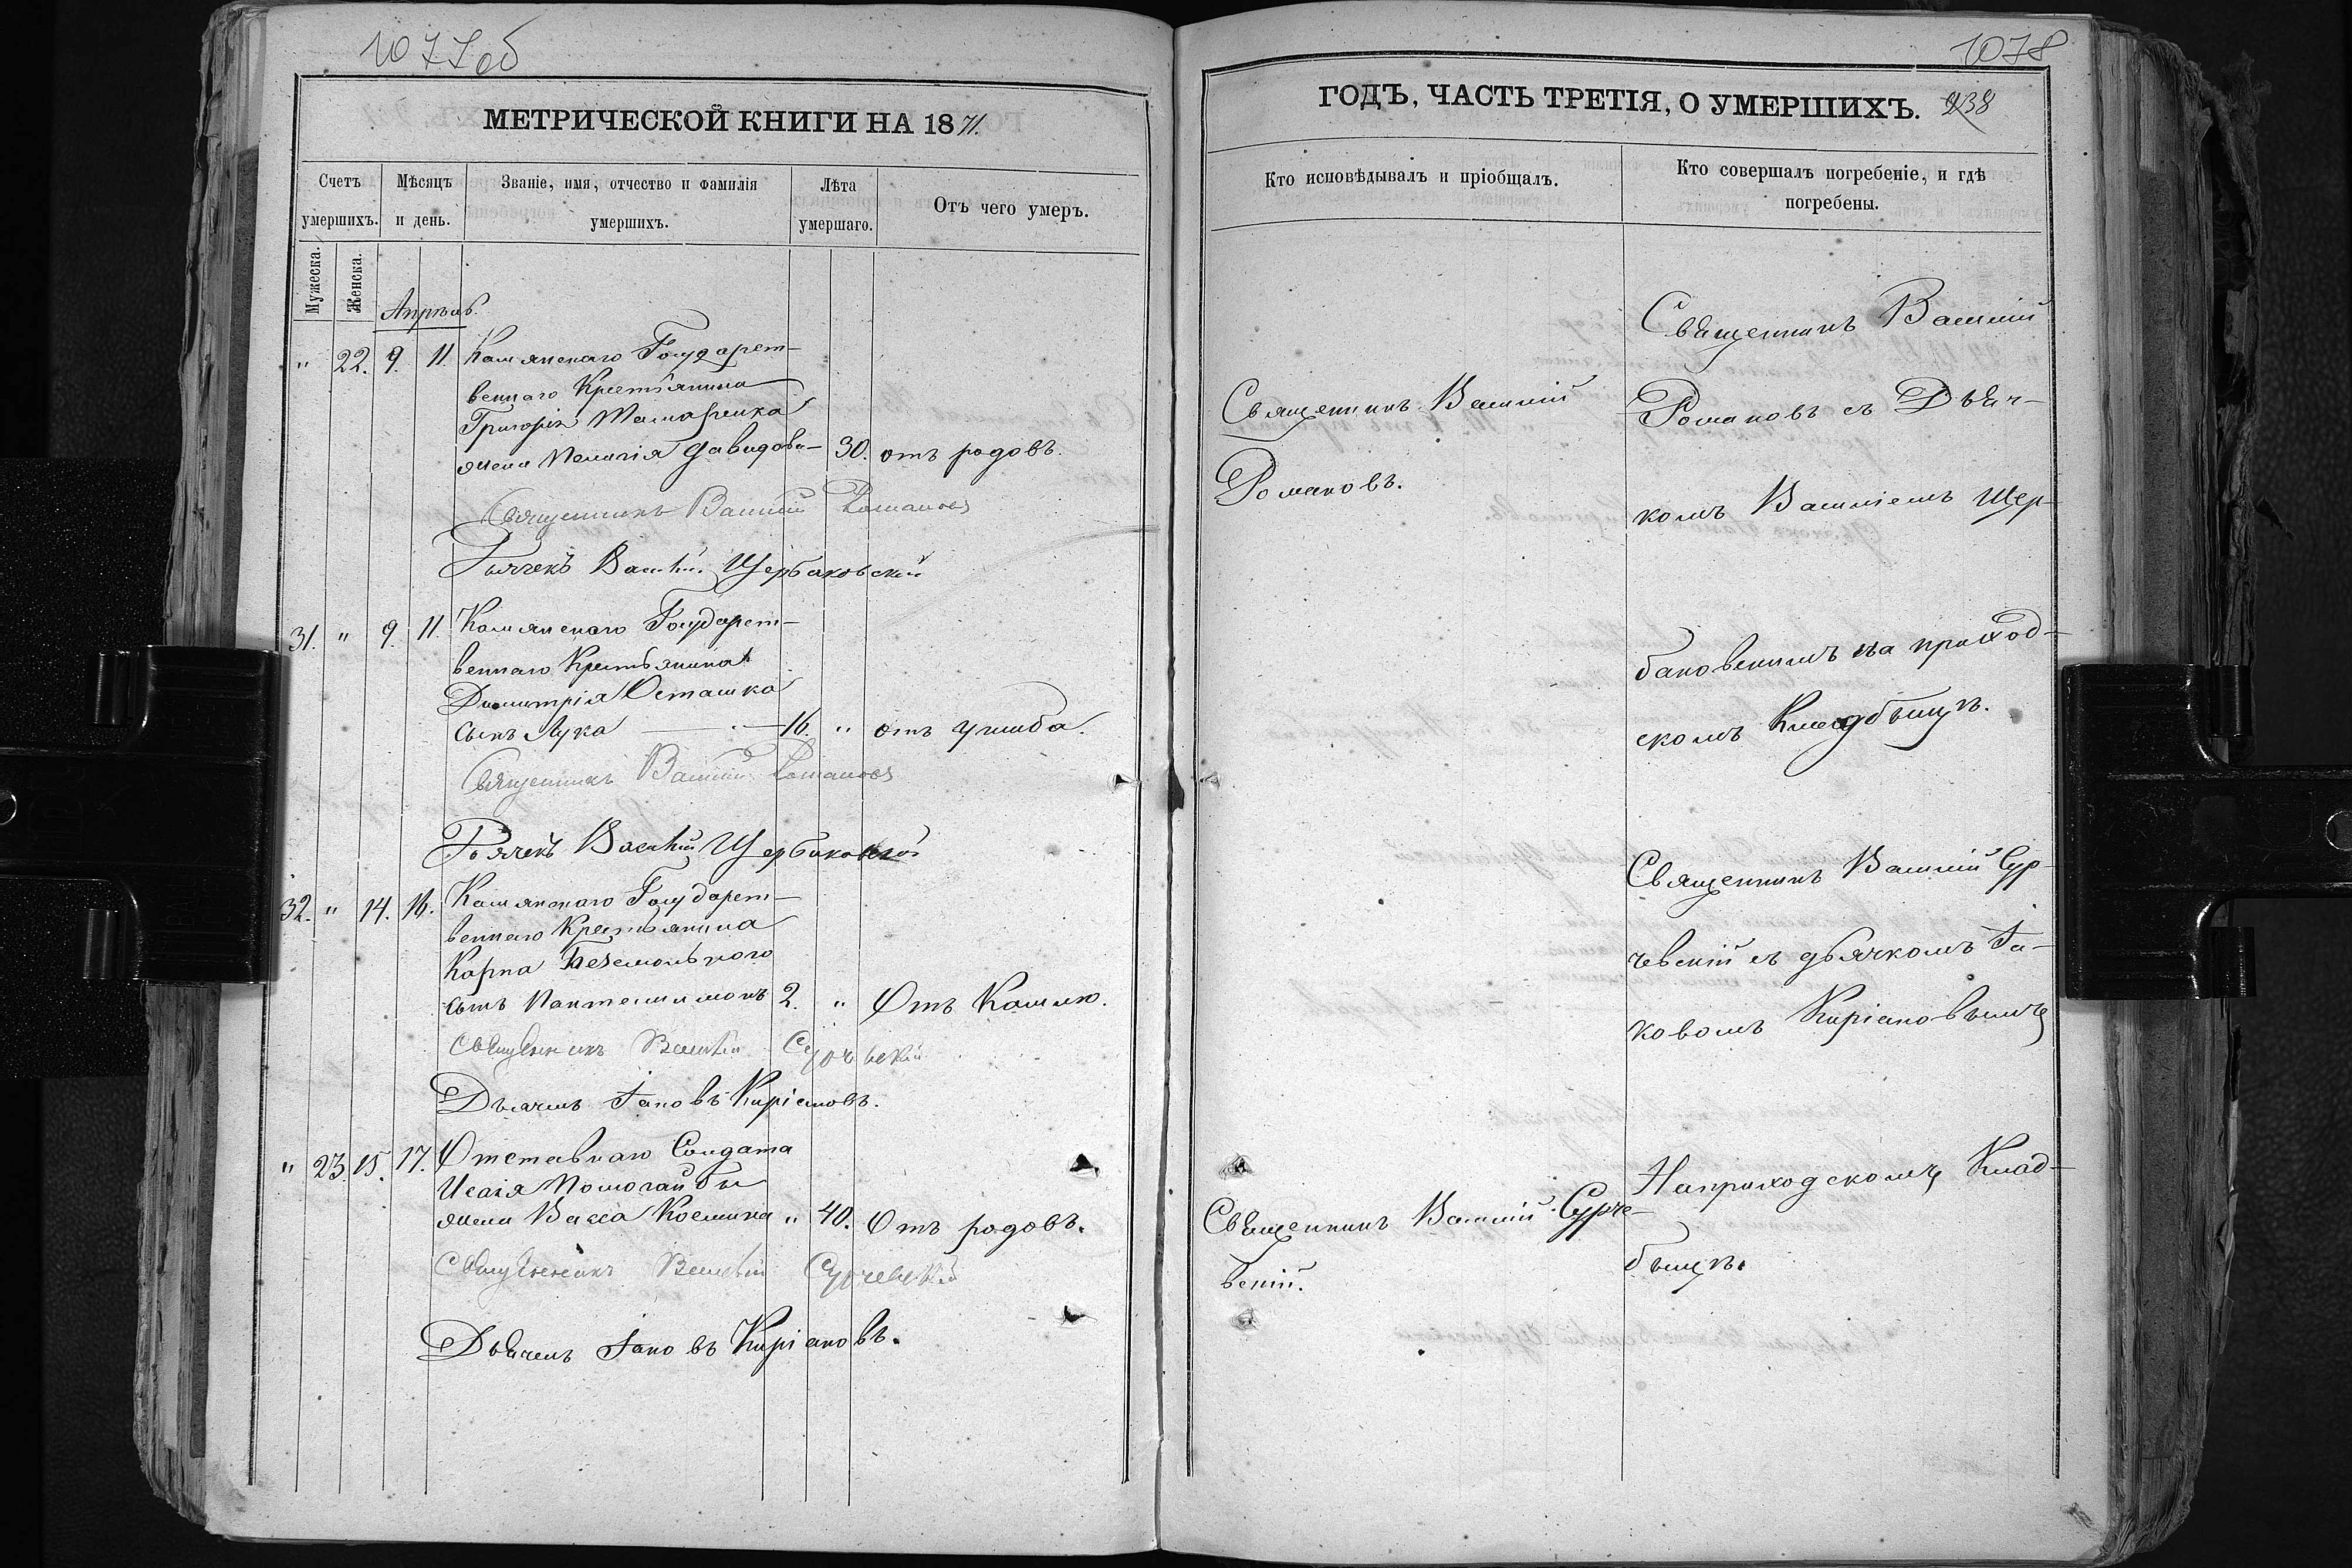 1077об
МЕТРИЧЕСКОЙ КНИГИ НА 1871.
Счетъ умершихъ.
Мѣсяцъ и день.
Званіе, имя, отчество и фамилія умершихъ.
Лѣта умершаго.
Отъ чего умеръ.
Мужеска.
Женска.
Апрѣль.
" 22. 9. 11. Камянскаго Государст-
веннаго Крестьянина
Григорія
жена Пелагія Давидова— 30. отъ родовъ.
Священникъ Василій Романовъ
Дьячекъ Василій Щербаковскій
31. " 9. 11. Камянскаго Государст-
веннаго Крестьянина
Димитрія Осташка
сынъ Лука — 16. " отъ ушиба.
Священникъ Василій Романовъ
Дьячекъ Василій Щербаковскій
32. " 14. 16. Камянскаго Государст-
веннаго Крестьянина
Карпа Безсмольного
сынъ Пантелимонъ 2. " Отъ Кашлю.
Священникъ Василій Сурчевскій
Дьячекъ Іаковъ Кириановъ.
" 23. 15. 17. Отставнаго Солдата
Исаія Помогайбы
жена Васса Космина " 40. Отъ родовъ.
Священникъ Василій Сурчевскій
Дьячекъ Іаковъ Киріановъ.
1078
ГОДЪ, ЧАСТЬ ТРЕТІЯ, О УМЕРШИХЪ. 238
Кто исповѣдывалъ и пріобщалъ.
Кто совершалъ погребеніе, и гдѣ погребены.
Священникъ Василій
Романовъ.
Священникъ Василій
Романовъ съ Дьяч-
комъ Василіемъ Щер-
баковскимъ на приход-
скомъ Кладбищѣ.
Священникъ Василій Сур-
чевскій съ дьячкомъ Іа-
ковомъ Киріановымъ
Священникъ Василій Сурче-
вскій.
На приходскомъ Клад-
бищѣ.